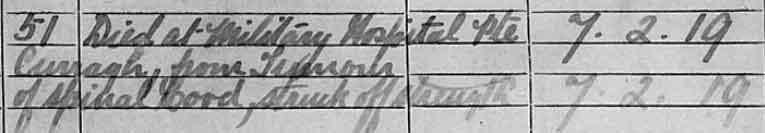 51 Died at Military Hospital Pte 7. 2. 19
Curragh, from Tumour
of Spinal Cord, struck off strength 7. 2. 19